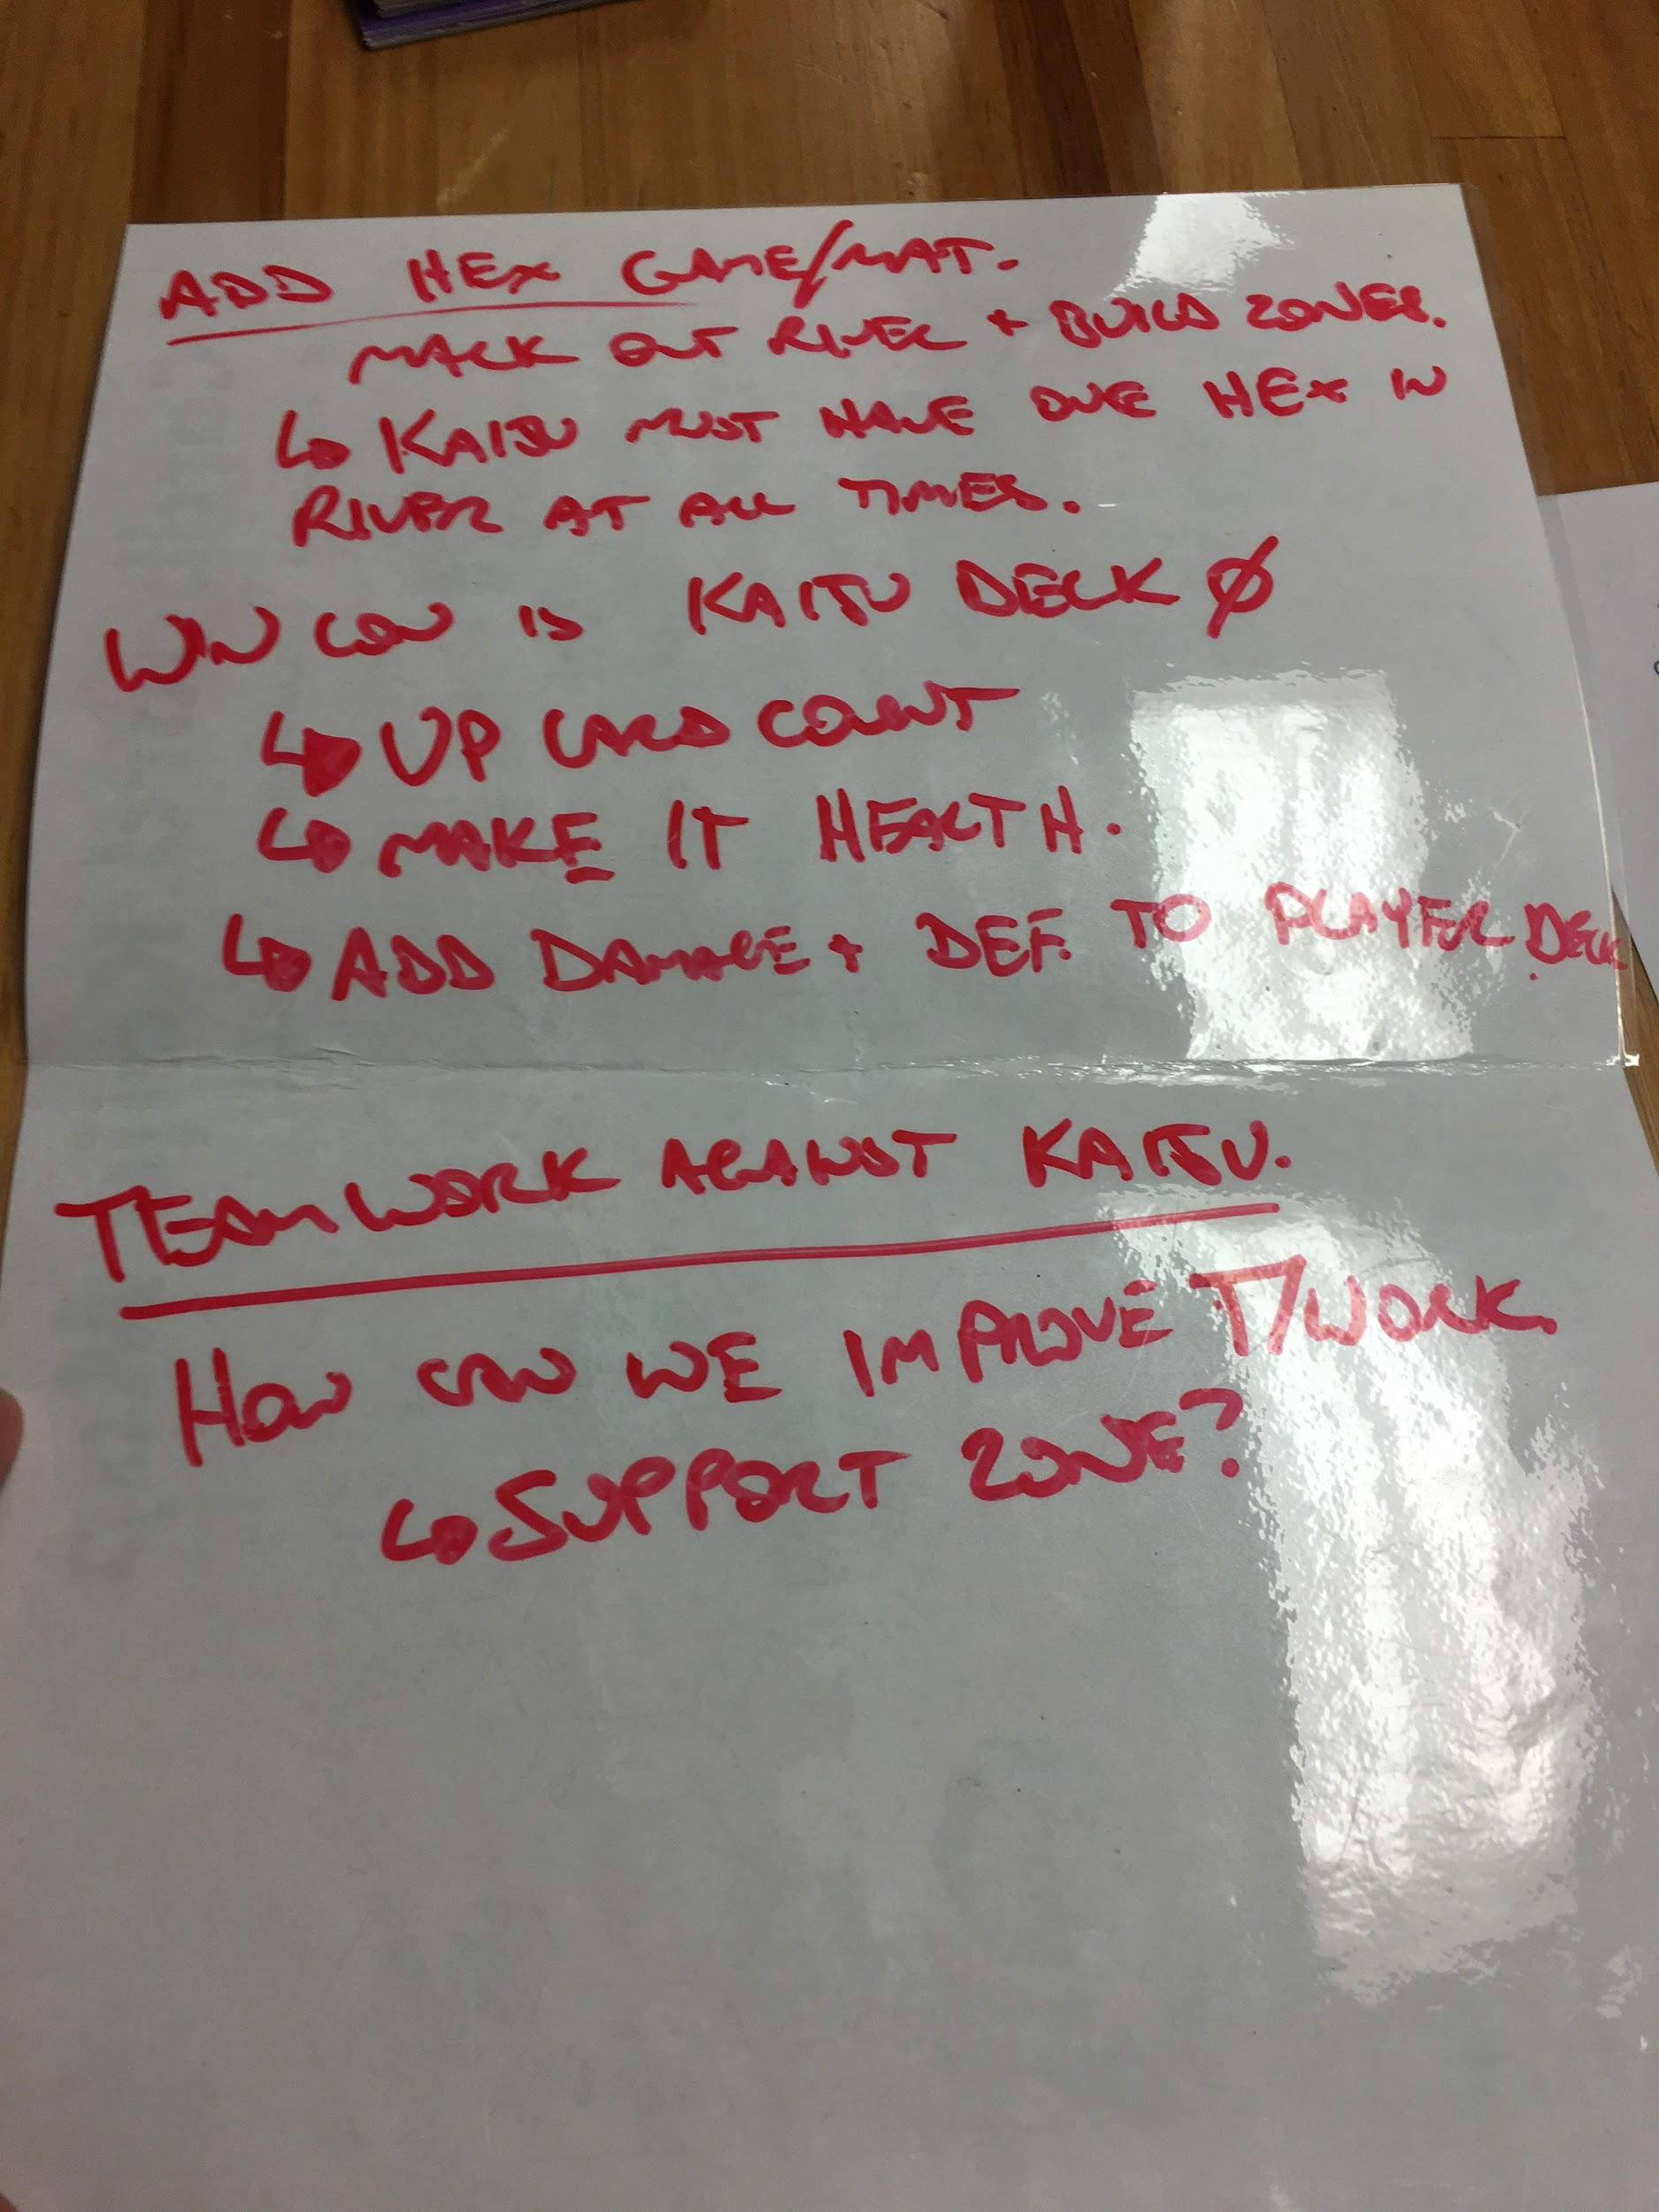 ADD HEX GAME/MAT.
MARK OUT RIVER + BUILD ZONES.
↳ KAIJU MUST HAVE ONE HEX IN
RIVER AT ALL TIMES.
WIN CON IS KAIJU DECK Ø
↳ UP CARD COUNT
↳ MAKE IT HEALTH.
↳ ADD DAMAGE + DEF. TO PLAYER DECK.
TEAMWORK AGAINST KAIJU.
HOW CAN WE IMPROVE T/WORK.
↳ SUPPORT ZONE?